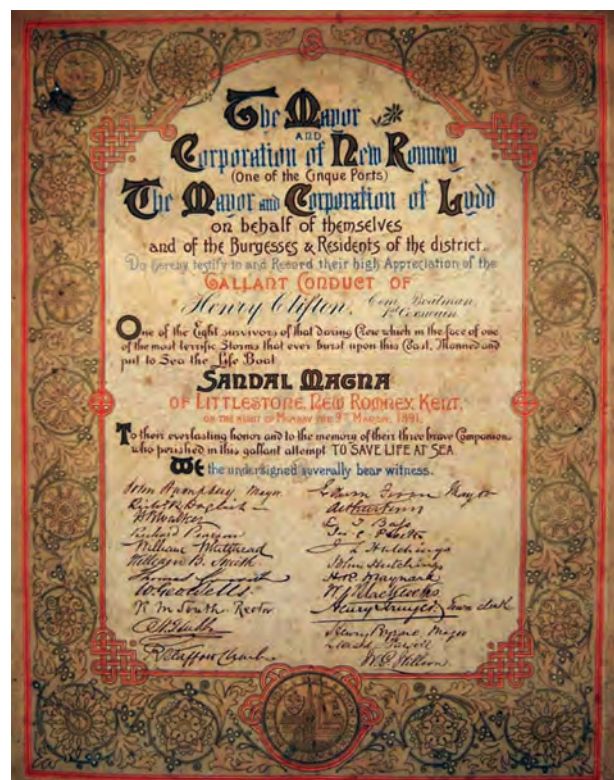 The Mayor
AND
Corporation of New Romney
(One of the Cinque Ports)
The Mayor and Corporation of Lydd
on behalf of themselves
and of the Burgesses & Residents of the district.
Do hereby testify to and Record their high Appreciation of the
GALLANT CONDUCT OF
Henry Clifton, Com. Boatman,
One of the Eight survivors of that daring Crew which in the face of one
of the most terrific Storms that ever burst upon this Coast, Manned and
put to Sea the Life Boat
SANDAL MAGNA
OF LITTLESTONE, NEW ROMNEY, KENT,
ON THE NIGHT OF MONDAY THE 9TH MARCH, 1891.
To their everlasting honor and to the memory of their three brave Companions
who perished in this gallant attempt TO SAVE LIFE AT SEA
WE the undersigned severally bear witness.
John Humphrey Mayor
Edwin Mayor
Walker
Richard Pearson
J. L. Hutchings
William Whitbread
John Hutchings
William B. Smith
Thomas
R. M. South Rector
Town clerk
Henry Mayor